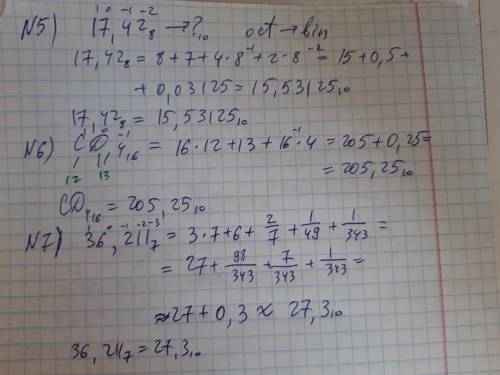 №5) 17,42₈ → ?₁₀ oct → bin
1 0 -1 -2
17,42₈ = 8 + 7 + 4·8⁻¹ + 2·8⁻² = 15 + 0,5 +
+ 0,03125 = 15,53125₁₀
17,42₈ = 15,53125₁₀
№6) CD,4₁₆ = 16·12 + 13 + 16⁻¹·4 = 205 + 0,25 =
1 0 -1
12 13
= 205,25₁₀
CD,4₁₆ = 205,25₁₀
№7) 36,211₇ = 3·7 + 6 + 2/7 + 1/49 + 1/343 =
1 0 -1 -2 -3
= 27 + 98/343 + 7/343 + 1/343 =
≈ 27 + 0,3 ≈ 27,3₁₀
36,211₇ = 27,3₁₀